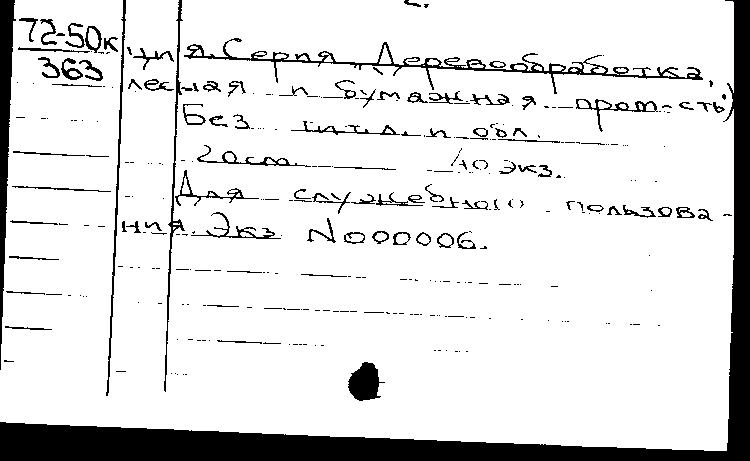 2.
72-50к
363
ция. Серия "Деревообработка,
лесная и бумажная пром-сть")
Без тит. л. и обл.
20см. 40 экз.
Для служебного пользова-
ния. Экз №000006.